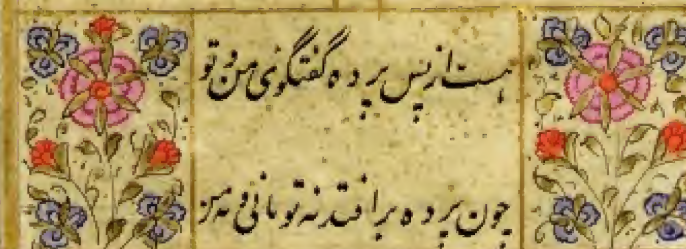 هست از پس پرده گفتگوی من و تو
چون پرده برافتد نه تو مانی و نه من